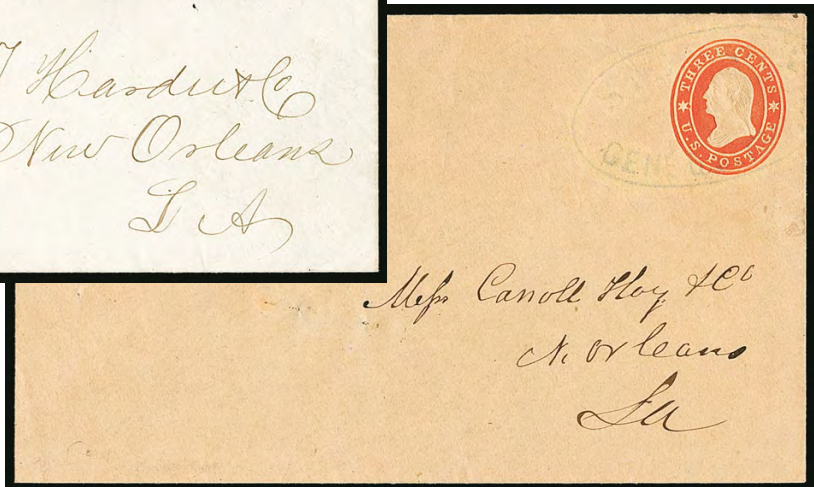 Hardie & Co
New Orleans
L A
THREE CENTS
U.S. POSTAGE
Mess Carroll Hoy & Co
N. Orleans
La